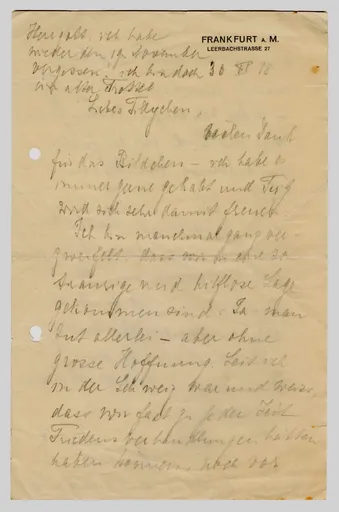 Herrgott, ich habe
wieder den 19. November
vergessen. ich bin doch
ein alter Trottel
FRANKFURT A. M.
LEERBACHSTRASSE 27
30 XI 18
Liebes Tillychen,
vielen Dank
für das Bildchen – ich habe es
immer gerne gehabt und
wird sich sehr damit freuen.
Ich bin manchmal ganz ver
zweifelt, dass wir in eine so
traurige und hilflose Lage
gekommen sind. Ja – man
tut allerlei – aber ohne
grosse Hoffnung. Seit ich
in der Schweiz war und weiss,
dass wir fast zu jeder Zeit
Friedensverhandlungen hätten
haben können, noch vor